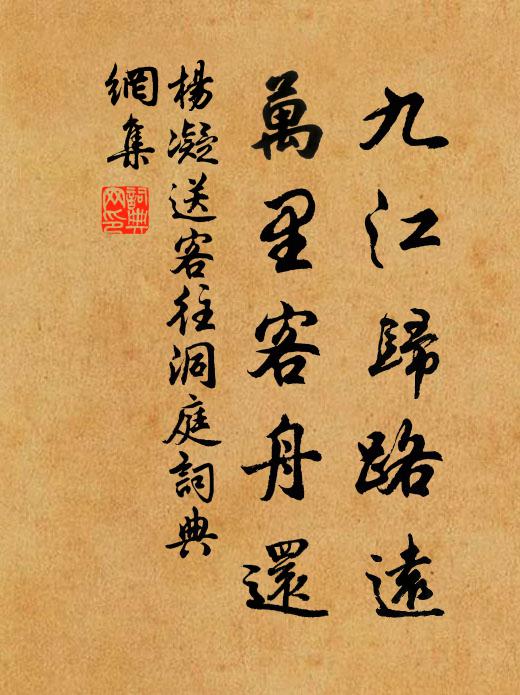 九江歸路遠
萬里客舟還
楊凝送客往洞庭詞典
網集
詞典
网印